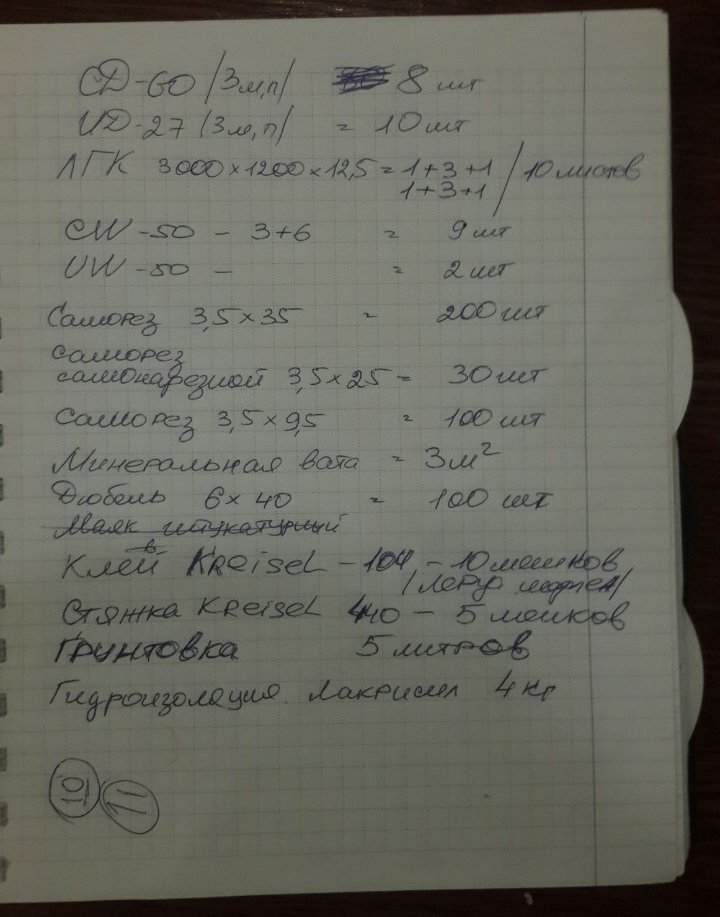 CD-60 /3м,п/ 8 шт
UD-27 /3м,п/ = 10 шт
ЛГК 3000×1200×12,5 = 1+3+1 / 10 листов
1+3+1
CW-50 - 3+6 = 9 шт
UW-50 - = 2 шт
Саморез 3,5×35 = 200 шт
саморез
самонарезной 3,5×25 = 30 шт
Саморез 3,5×9,5 = 100 шт
Минеральная вата = 3м²
Дюбель 6×40 = 100 шт
Маяк штукатурный
Клей KReiseL - 104 - 10 мешков
/леруа мерлен/
Стяжка KReiseL 440 - 5 мешков
Грунтовка 5 литров
Гидроизоляция Лакрисил 4 кг
10 11